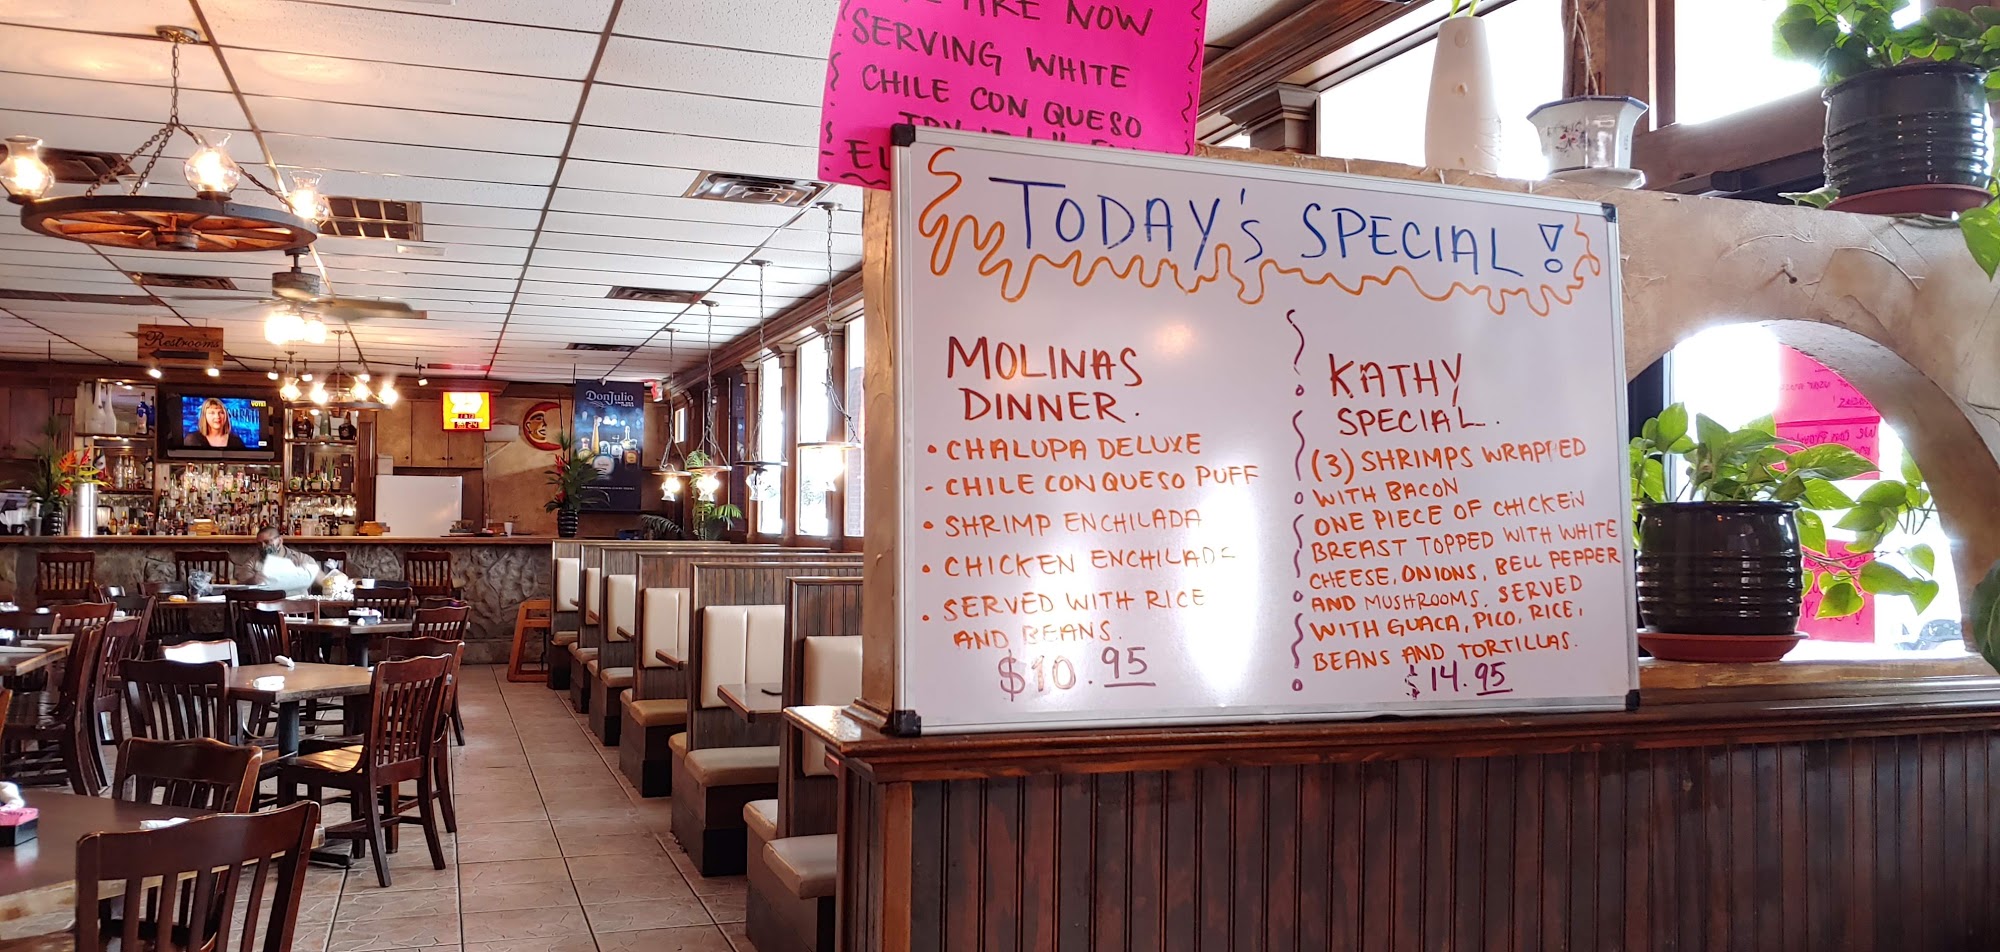 ARE NOW
SERVING WHITE
CHILE CON QUESO
TODAY'S SPECIAL!
MOLINAS
DINNER.
• CHALUPA DELUXE
- CHILE CON QUESO PUFF
• SHRIMP ENCHILADA
• CHICKEN ENCHILADA
• SERVED WITH RICE
AND BEANS.
$10.95
KATHY
SPECIAL.
(3) SHRIMPS WRAPPED
WITH BACON
ONE PIECE OF CHICKEN
BREAST TOPPED WITH WHITE
CHEESE, ONIONS, BELL PEPPER
AND MUSHROOMS. SERVED
WITH GUACA, PICO, RICE,
BEANS AND TORTILLAS.
$14.95
Restrooms
VOTE!
DonJulio